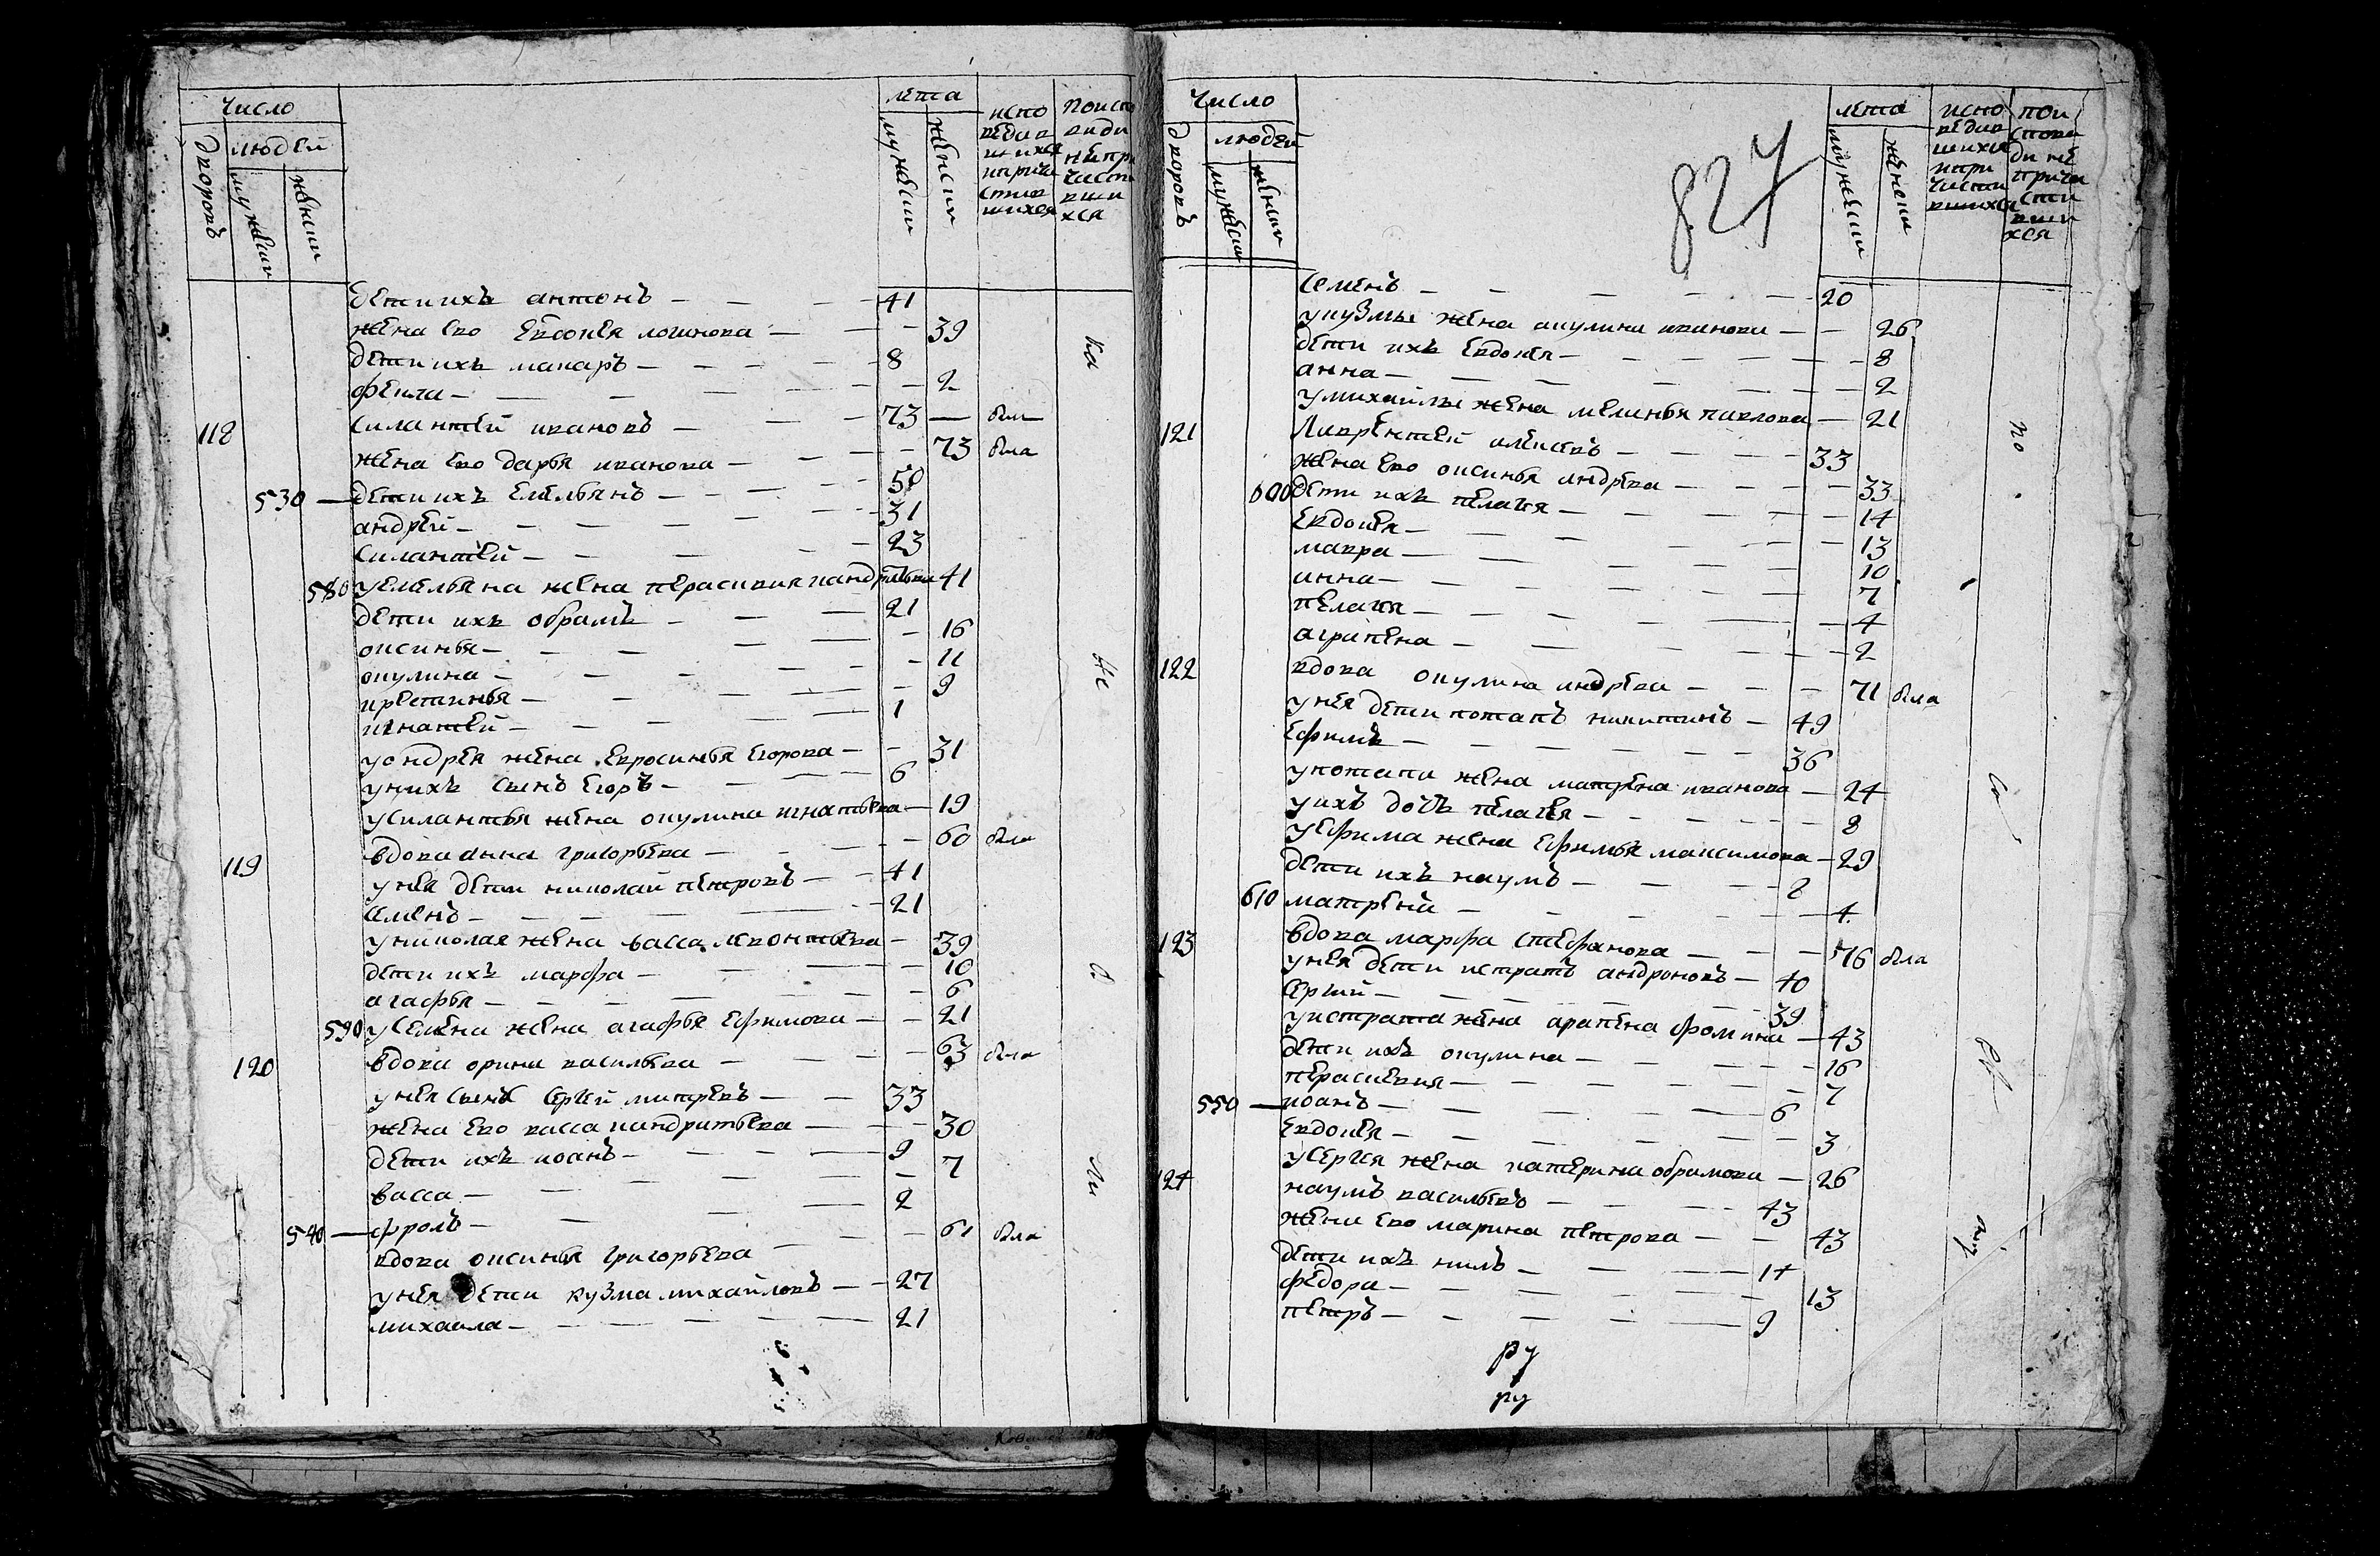 число
лета
дворовъ
людей
мужеска
женска
мужеска
женска
испо
ведав
шихся
иприча
стив
шихся
поиспо
веди
непри
части
вши
хся
дети ихъ антонъ — — — 41
жена ево евдокея логинова — — 39
дети ихъ макаръ — — — 8
фекла — — — 2
118 силантей ивановъ — — 73 — был
жена ево дарья иванова — — 73 была
530 — дети ихъ емельянъ — — 50
андрей — — — 31
силантей — — — 23
580 уемельяна жена перасковия кандратьева 41
дети ихъ обрамъ — — 21
оксинья — — — 16
окулина — — — 11
устинья — — — 9
игнатей — — — 1
уондрея жена евросинья егорова — — 31
унихъ сынъ егоръ — — 6
усилантья жена окулина игнатьева — 19
119 вдова анна григорьева — — 60 была
унея дети николай петровъ — — 41
семенъ — — — 21
униколая жена васса леонтьева — 39
дети ихъ марфа — — 10
агафья — — — 6
590 усемена жена агафья ефимова — — 21
120 вдова орина васильева — — 63 была
унея сынъ сергей митревъ — — 33
жена ево васса кандратьева — — 30
дети ихъ иоанъ — — — 9
васса — — — 7
540 — фролъ — — — 2
вдова оксинья григорьева — — 61 была
унея дети кузма михайловъ — — 27
михаила — — — 21
ка
не
а
ли
число
827
лета
дворовъ
людей
мужеска
женска
мужеска
женска
испо
ведав
шихся
ипри
части
вшихся
пои
спове
ди не
прича
сти
вши
хся
семенъ — — — 20
укузмы жена акулина иванова — — 26
дети ихъ евдокея — — — 8
анна — — — 2
умихаилы жена меланья павлова — 21
121 Лаврентей алексевъ — — 33
жена ево оксинья андрева — — 33
600 дети ихъ пелагея — — — 14
евдокея — — — 13
мавра — — — 10
анна — — — 7
пелагея — — — 4
агрипена — — — 2
122 вдова окулина андрева — — 71 была
унея дети потапъ никитинъ — 49
ефимъ — — — 36
употапа жена матрена иванова — 24
уихъ дочь пелагея — — — 8
уефима жена ефимья максимова — 29
дети ихъ наумъ — — — 2
610 матрена — — — 4
123 вдова марфа стефанова — — 76 была
унея дети истратъ андроновъ — 40
сергий — — — 39
уистрата жена арапена фомина — 43
дети ихъ окулина — — — 16
перасковия — — — 7
550 — иоанъ — — — 6
евдокея — — — 3
усергея жена катерина обрамова — 26
124 наумъ васильевъ — — 43
жена ево марина петрова — — 43
дети ихъ нилъ — — 14
федора — — — 13
петръ — — — 9
ру
ру
по
со